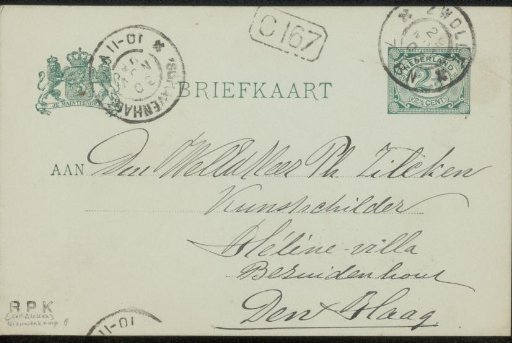 C 167
ZWOLLE
'S GRAVENHAGE
10-11
NEDERLAND
2½
2½ CENT
JE MAINTIENDRAI
BRIEFKAART
AAN Den WelEd Heer Ph. Zilcken
Kunstschilder
Hélène-villa
Bezuidenhout
Den Haag
RPK
11-01